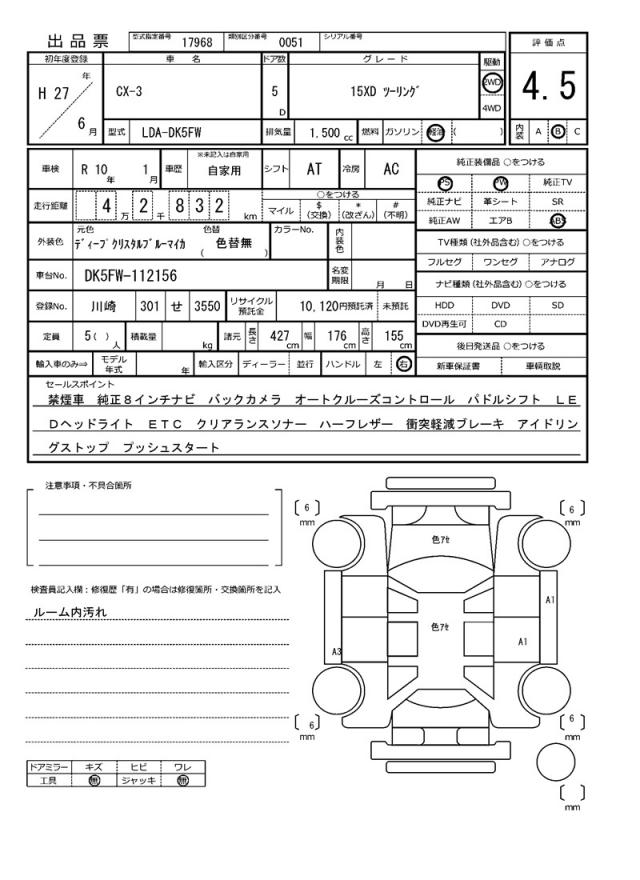 出品票 型式指定番号 17968 類別区分番号 0051 シリアル番号
評価点
4.5
内装 A B C
初年度登録 車名 ドア数 グレード 駆動
H 27 年 6 月
CX-3 5 D 15XD ツーリング 2WD 4WD
型式 LDA-DK5FW 排気量 1.500 cc 燃料 ガソリン 軽油 ( )
車検 R 10 年 1 月 車歴 ※未記入は自家用 自家用 シフト AT 冷房 AC
走行距離 4 万 2 千 8 3 2 km
○をつける
マイル $(交換) *(改ざん) #(不明)
外装色 元色 ディープクリスタルブルーマイカ 色替 ( 色替無 ) カラーNo. 内装色
車台No. DK5FW-112156 名変期限 月 日
登録No. 川崎 301 せ 3550 リサイクル預託金 10,120円預託済 未預託
定員 5( ) 人 積載量 kg 諸元 長さ 427 cm 幅 176 cm 高さ 155 cm
輸入車のみ⇒ モデル年式 年 輸入区分 ディーラー 並行 ハンドル 左 右
純正装備品 ○をつける
PS PW 純正TV
純正ナビ 革シート SR
純正AW エアB ABS
TV種類(社外品含む)○をつける
フルセグ ワンセグ アナログ
ナビ種類(社外品含む)○をつける
HDD DVD SD
DVD再生可 CD
後日発送品 ○をつける
新車保証書 車輌取説
セールスポイント
禁煙車 純正8インチナビ バックカメラ オートクルーズコントロール パドルシフト LE
Dヘッドライト ETC クリアランスソナー ハーフレザー 衝突軽減ブレーキ アイドリン
グストップ プッシュスタート
注意事項・不具合箇所
検査員記入欄:修復歴「有」の場合は修復箇所・交換箇所を記入
ルーム内汚れ
ドアミラー キズ ヒビ ワレ
工具 無 ジャッキ 無
6 mm
6 mm
色アセ
A1
色アセ
A1
A3
6 mm
6 mm
mm